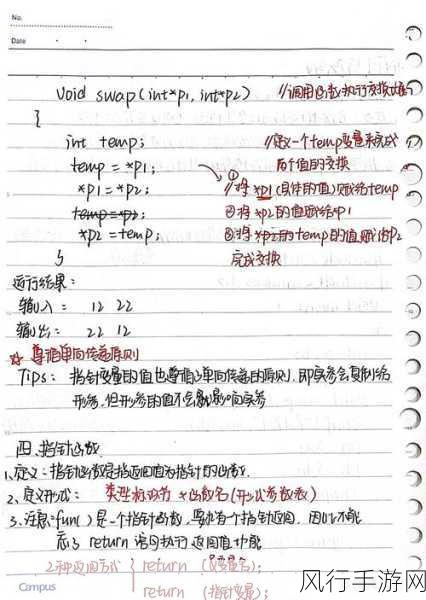 No.
Date
void swap(int*p1, int*p2) //调用函数执行交换功能
{
int temp; //定义一个temp变量来完成
两个值的交换
temp = *p1; ①
*p1 = *p2; //将 *p1 (具体的值)赋给temp
temp=*p2; ②将 *p2的值赋给*p1
*p2 = temp; ③将 *p2的temp的值赋给p2
} 完成交换
运行结果:
输入: 12 22
输出: 22 12
☆ 遵循单向传递原则
Tips: 指针变量的值也遵循单向传递的原则,即实参会复制给
形参,但形参的值不会影响实参
四.指针函数
1、定义:指针函数是指返回值为指针的函数.
2、定义形式: 类型标识符 *函数名(形式参数表)
3、注意:fun( )是一个指针函数,要求有个指针返回,因此不能
return 语句执行返回值功能
2种返回方式 { return (&变量名);
return (指针变量);
Campus
风行手游网